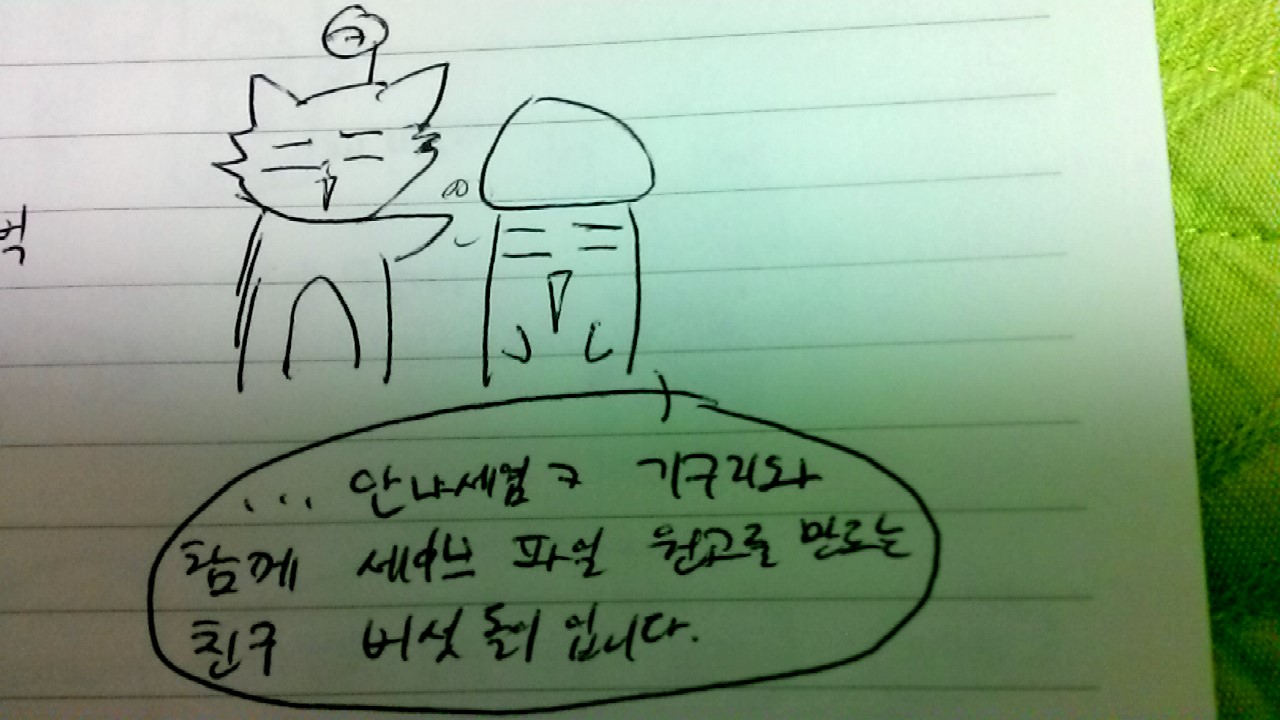 ㅋ
벅
... 안냐세염 ㅋ 기구리와
함께 세이브 파일 원고를 만드는
친구 버섯돌이 입니다.